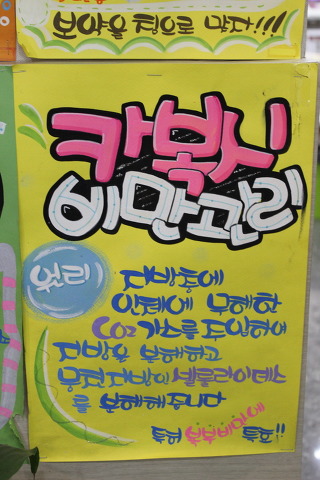 보약을 팀으로 먹자!!!
카복시
비만관리
원리
지방층에
인체에 무해한
CO2 가스를 주입하여
지방을 분해하고
뭉친지방인 셀룰라이테스
를 분해해줍니다
특히 부분비만에
특효!!